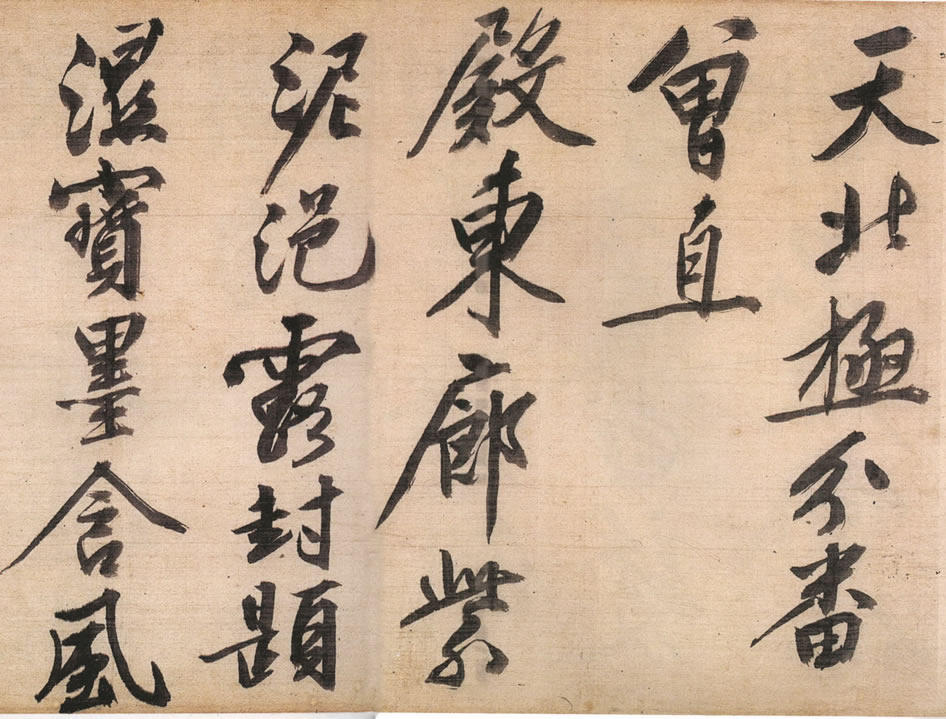 天北極分番
曾直
殿東廊紫
泥浥露封題
濕寳墨含風